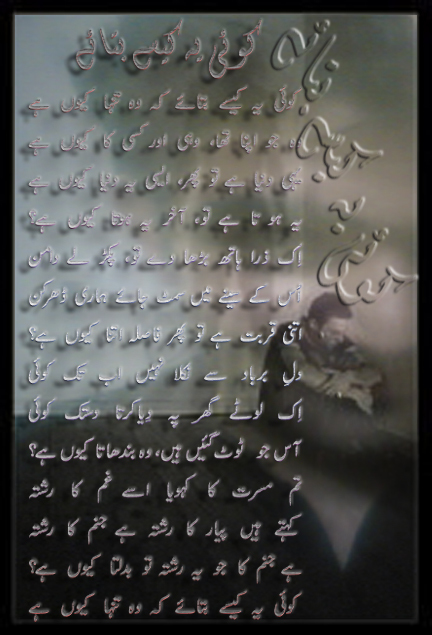 کوئی یہ کیسے بتائے
کوئی یہ کیسے بتائے کہ وہ تنہا کیوں ہے
وہ جو اپنا تھا، وہی اور کسی کا کیوں ہے
یہی دنیا ہے تو پھر، ایسی یہ دنیا کیوں ہے
یہ ہو تا ہے تو، آخر یہ ہوتا کیوں ہے؟
اِک ذرا ہاتھ بڑھا دے تو، پکڑ لے دامن
اُس کے سینے میں سمٹ جائے ہماری دھڑکن
اتنی قربت ہے تو پھر فاصلہ اتنا کیوں ہے؟
دلِ برباد سے نکلا نہیں اب تک کوئی
اِک لوٹے گھر پہ دِیاکرتا دستک کوئی
آس جو ٹوٹ گئیں ہیں، وہ بندھاتا کیوں ہے؟
تم مسرت کا کہویا اسے غم کا رشتہ
کہتے ہیں پیار کا رشتہ ہے جنم کا رشتہ
ہے جنم کا جو یہ رشتہ تو بدلتا کیوں ہے؟
کوئی یہ کیسے بتائے کہ وہ تنہا کیوں ہے